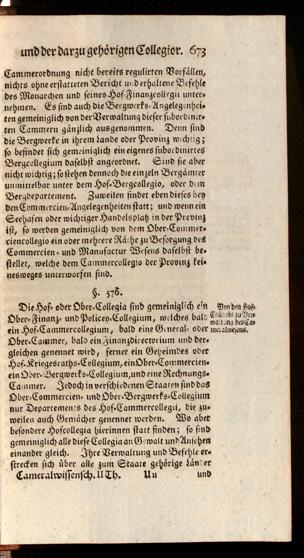 und der darzu gehörigen Collegior. 673
Cammerordnung nicht bereits regulirten Vorfällen,
nichts ohne erstatteten Bericht und erhaltene Befehle
des Monarchen und seines Hof-Finanzcollegii unter-
nehmen. Es sind auch die Bergwerks-Angelegenhei-
ten gemeiniglich von der Verwaltung dieser subordinir-
ten Cammern gänzlich ausgenommen. Denn sind
die Bergwerke in ihrem Lande oder Provinz wichtig;
so befindet sich gemeiniglich ein eigenes subordinirtes
Bergcollegium daselbst angeordnet. Sind sie aber
nicht wichtig; so stehen dennoch die einzeln Bergämter
unmittelbar unter dem Hof-Bergcollegio, oder dem
Bergdepartement. Zuweilen findet eben dieses bey
den Commercien-Angelegenheiten statt; und wenn ein
Seehafen oder wichtiger Handelsplatz in der Provinz
ist, so werden gemeiniglich von dem Ober-Commer-
ciencollegio ein oder mehrere Räthe zu Besorgung des
Commercien- und Manufactur Wesens daselbst be-
stellet, welche dem Cammercollegio der Provinz kei-
nesweges unterworfen sind.
§. 576.
Die Hof- oder Ober-Collegia sind gemeiniglich ein
Ober-Finanz- und Policey-Collegium, welches bald
ein Hof-Cammercollegium, bald eine General- oder
Ober-Cammer, bald ein Finanzdirectorium und der-
gleichen genennet wird, ferner ein Geheimdes oder
Hof-Kriegesraths-Collegium, ein Ober-Commercien-
ein Ober-Bergwerks-Collegium, und eine Rechnungs-
Cammer. Jedoch in verschiedenen Staaten sind das
Ober-Commercien- und Ober-Bergwerks-Collegium
nur Departements des Hof-Cammercollegii, die zu-
weilen auch Gemächer genennet werden. Wo aber
besondere Hofcollegia hierinnen statt finden; so sind
gemeiniglich alle diese Collegia an Gewalt und Ansehen
einander gleich. Ihre Verwaltung und Befehle er-
strecken sich über alle zum Staate gehörige Länder
Cameralwissensch. II Th. Uu und
Von den Hof-
Collegiis zu Ver-
waltung des Ca-
meralwesens.